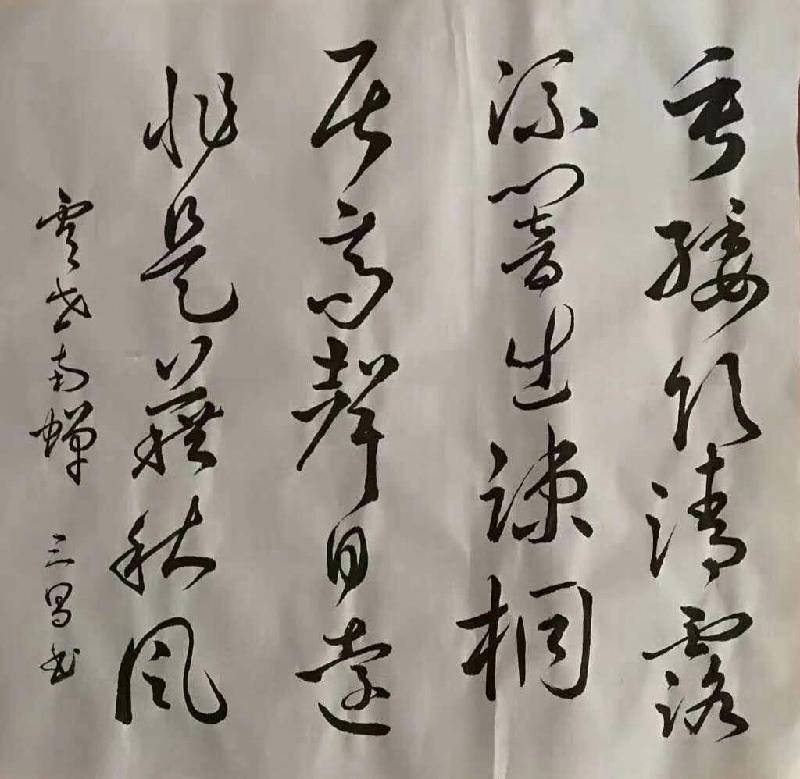 垂緌飲清露
流響出疎桐
居高聲自遠
非是藉秋風
虞世南蝉 三昌书